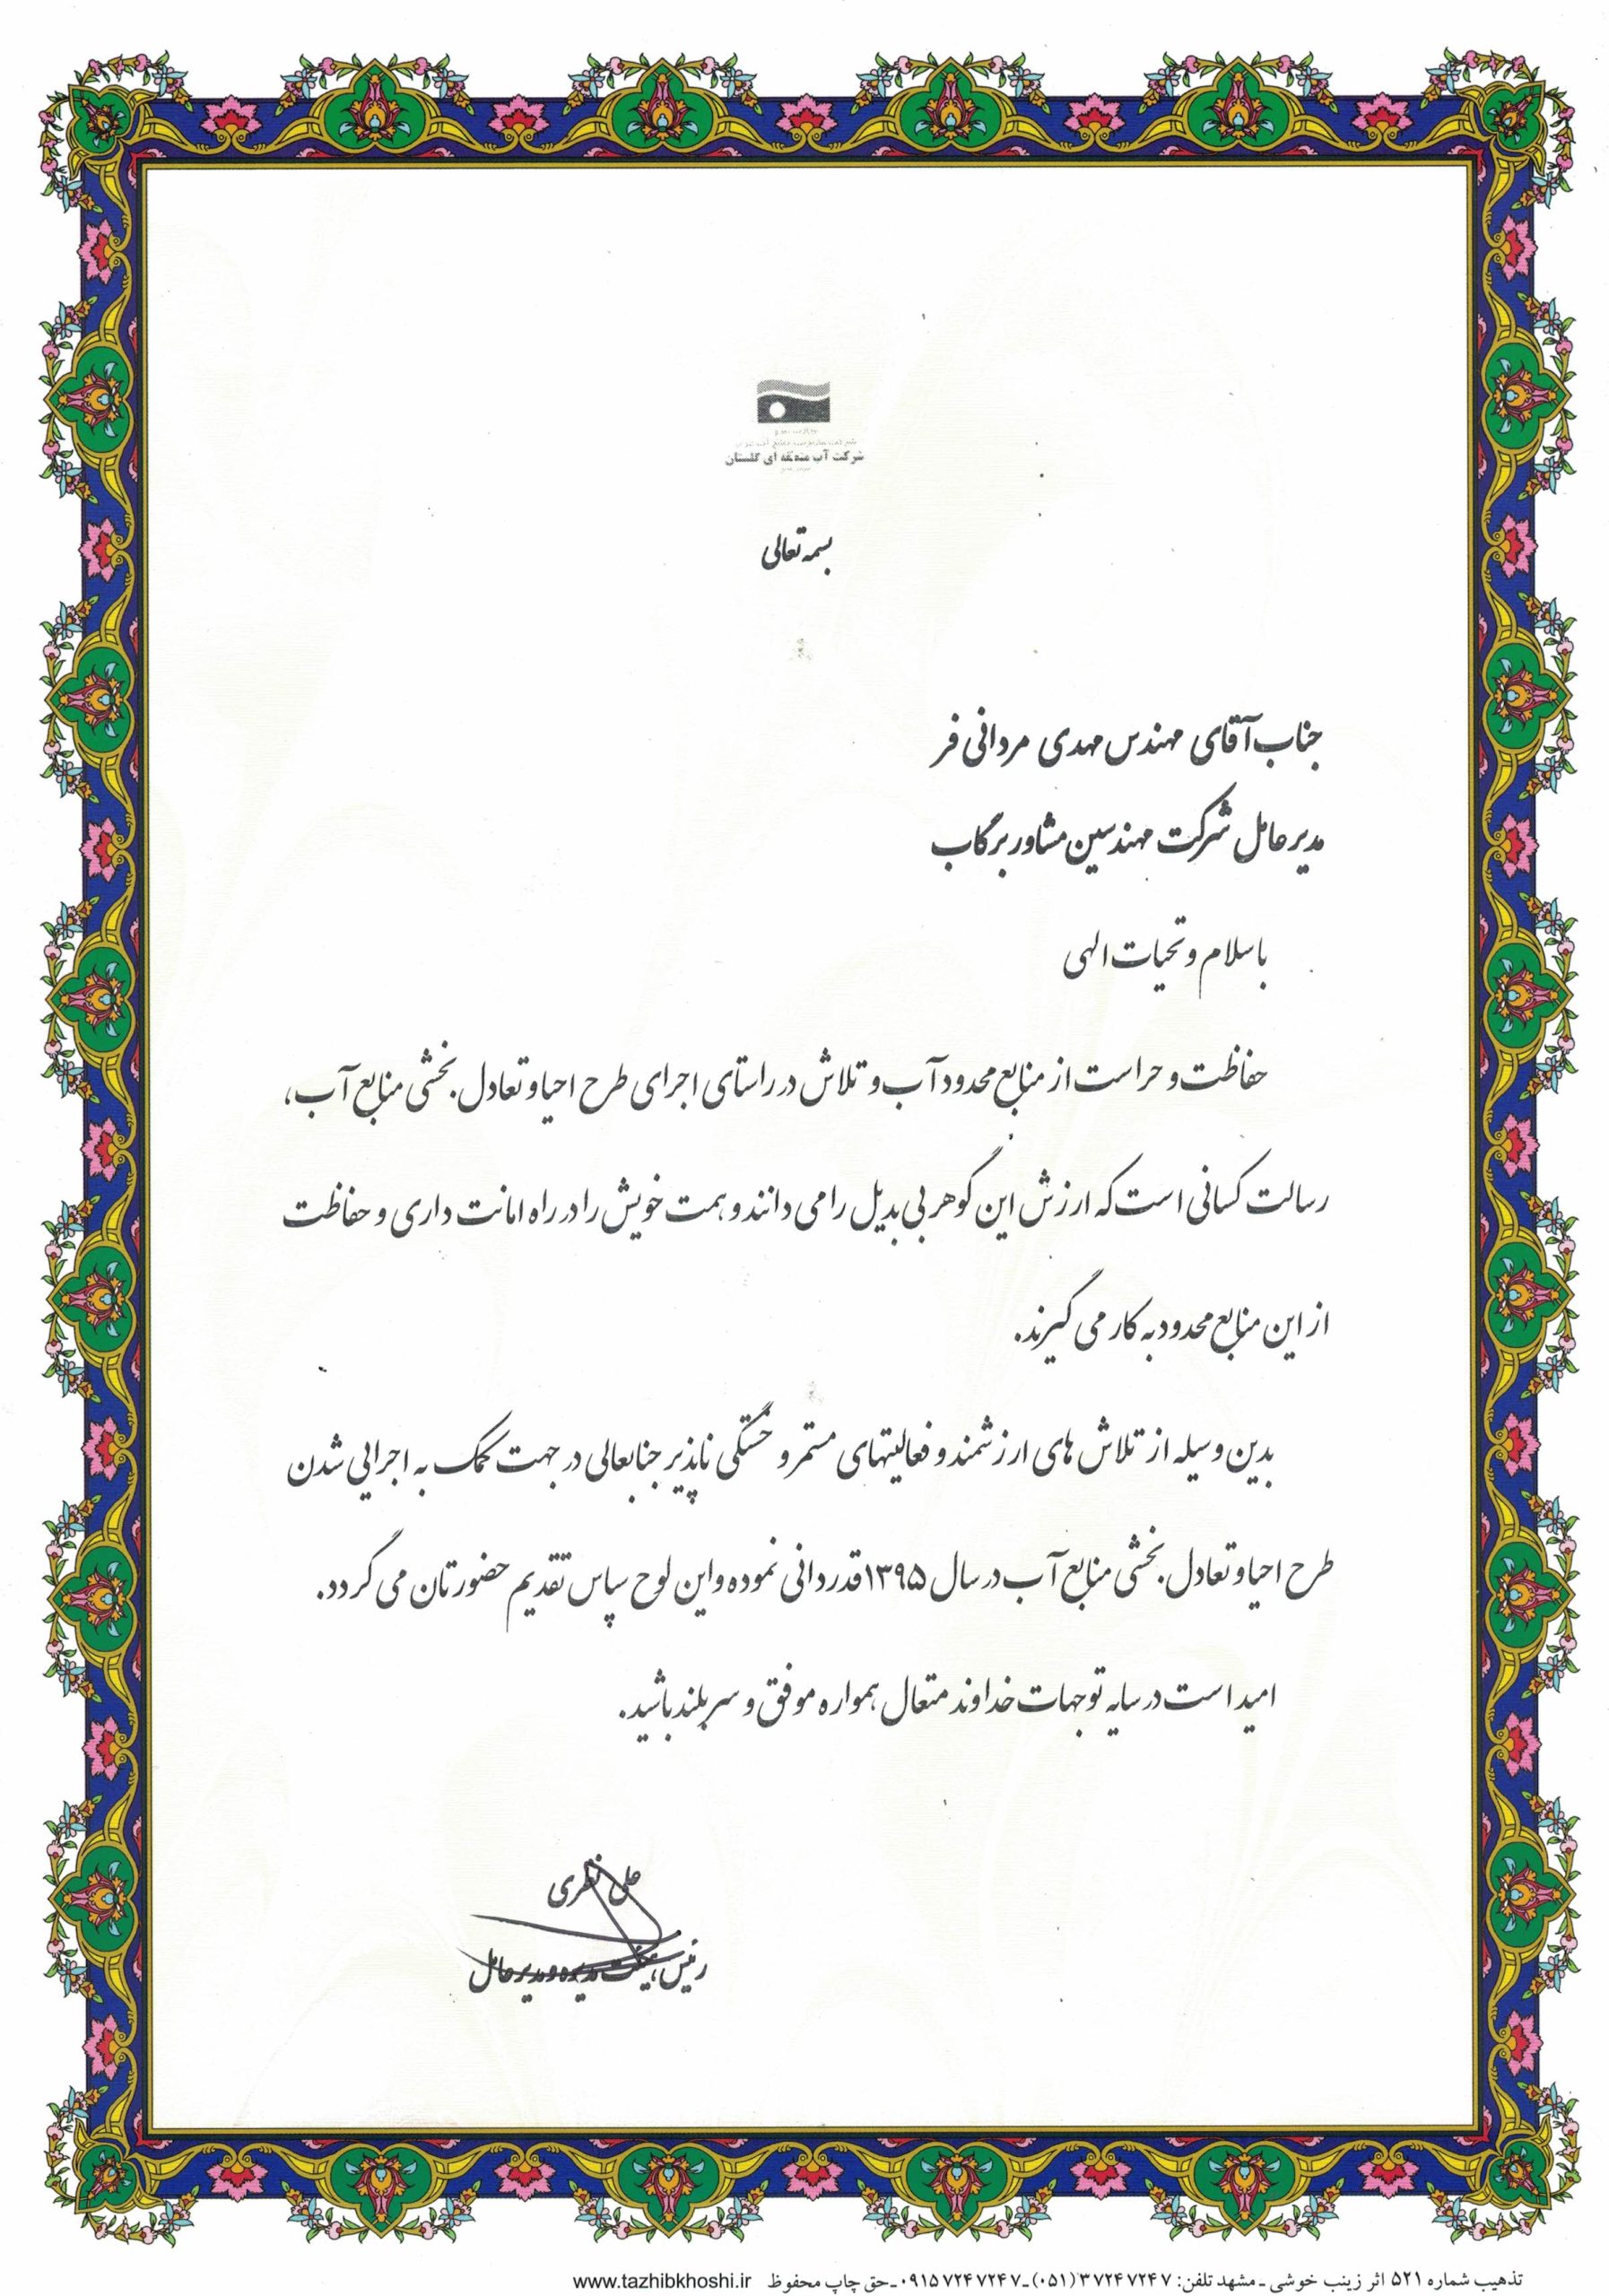 شرکت آب منطقه ای گلستان
بسمه تعالی
جناب آقای مهندس مهدی مردانی فر
مدیر عامل شرکت مهندسین مشاور برگاب
با سلام و تحیات الهی
حفاظت و حراست از منابع محدود آب و تلاش در راستای اجرای طرح احیا و تعادل بخشی منابع آب،
رسالت کسانی است که ارزش این گوهر بی بدیل را می دانند و همت خویش را در راه امانت داری و حفاظت
از این منابع محدود به کار می گیرند.
بدین وسیله از تلاش های ارزشمند و فعالیتهای مستمر و خستگی ناپذیر جنابعالی در جهت کمک به اجرایی شدن
طرح احیا و تعادل بخشی منابع آب در سال ۱۳۹۵ قدردانی نموده و این لوح سپاس تقدیم حضورتان می گردد.
امید است در سایه توجهات خداوند متعال همواره موفق و سربلند باشید.
علی نظری
رئیس هیئت مدیره و مدیر عامل
تذهیب شماره ۵۲۱ اثر زینب خوشی ـ مشهد تلفن: ۳۷۲۴۷۲۴۷ (۰۵۱) ـ ۰۹۱۵۷۲۴۷۲۴۷ ـ حق چاپ محفوظ www.tazhibkhoshi.ir